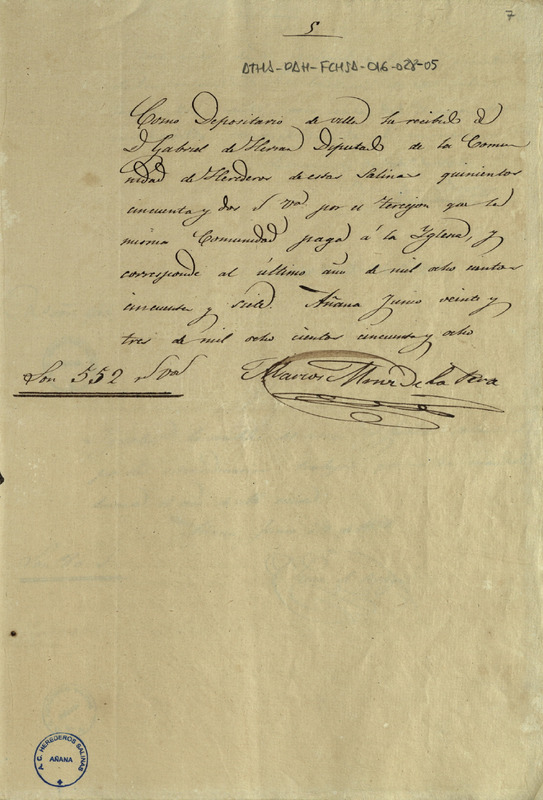 7
5
ATHA-DAH-FCHSA-016-028-05
Como Depositario de villa he recibido de
D. Gabriel de Herran Diputado de la Comu
nidad de Herederos de estas Salinas quinientos
cincuenta y dos rs. von. por el Tercejon que la
misma Comunidad paga á la Yglesia, y
corresponde al último año de mil ocho cientos
cincuenta y siete. Añana Junio veinte y
tres de mil ocho cientos cincuenta y ocho
Son 552 rs. von.
Marcos de la Pera
A. C. HEREDEROS SALINAS
AÑANA